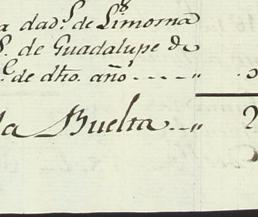 a dad,, de Limorna
S. de Guadalupe de
C. de dho. año ---- ,,
la Buelta ..,,